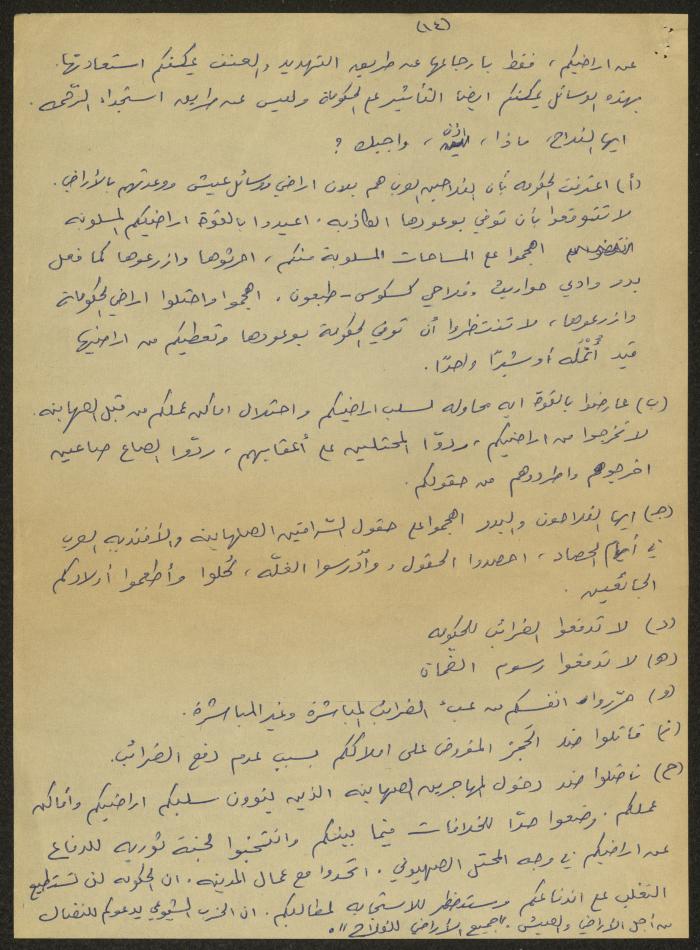 (١٤)
عن اراضيكم، فقط بارجاعها عن طريق التهديد والعنف يمكنكم استعادتها.
بهذه الوسائل يمكنكم ايضا التأثير على الحكومة وليس عن طريق استجداء الرحمة.
ايها الفلاح، ماذا، اذن، واجبك ؟
(أ) اعترفت الحكومه بأن الفلاحين العرب هم بدون اراضي ووسائل عيش ووعدتهم بالأراضي.
لا تتوقعوا بأن توفي بوعودها الكاذبه. اعيدوا بالقوة اراضيكم المسلوبه
اهجموا على المساحات المسلوبة منكم، احرثوها وازرعوها كما فعل
بدو وادي حواريث وفلاحي كسكوس - طبعون. اهجموا واحتلوا اراضي الحكومة
وازرعوها، لا تنتظروا أن توفي الحكومة بوعودها وتعطيكم من اراضيها
قيد أُنْمُلَه أو شبرًا واحدًا.
(ب) عارضوا بالقوة ايه محاوله لسلب اراضيكم واحتلال اماكن عملكم من قبل الصهاينه.
لا تخرجوا من اراضيكم، ردوّا المحتلين على أعقابهم، ردّوا الصاع صاعين
اخرجوهم واطردوهم من حقولكم.
(جـ) ايها الفلاحون والبدو اهجموا على حقول الصهاينة والأفنديه العرب
في أيام الحصاد، احصدوا الحقول، وادّرسوا الغلّه، كُلوا وأطعموا أولادكم
الجائعين.
(د) لا تدفعوا الضرائب للحكومه
(هـ) لا تدفعوا رسوم
(و) حرّروا انفسكم من عبء الضرائب المباشرة وغير المباشرة.
(ز) قاتلوا ضد الحجز المفروض على املاككم بسبب عدم دفع الضرائب.
(ح) ناضلوا ضد دخول المهاجرين الصهاينه الذين ينوون سلبكم اراضيكم وأماكن
عملكم. وضعوا حدّا للخلافات فيما بينكم وانتخبوا لجنة ثوريه للدفاع
عن اراضيكم في وجه المحتل الصهيوني. اتحدوا مع عمال المدينه. ان الحكومه لن تستطيع
التغلب على اندفاعكم وستضطر للاستجابه لمطالبكم. ان الحزب الشيوعي يدعوكم للنضال
من أجل الأراضي والعيش. "جميع الأراضي للفلاح".